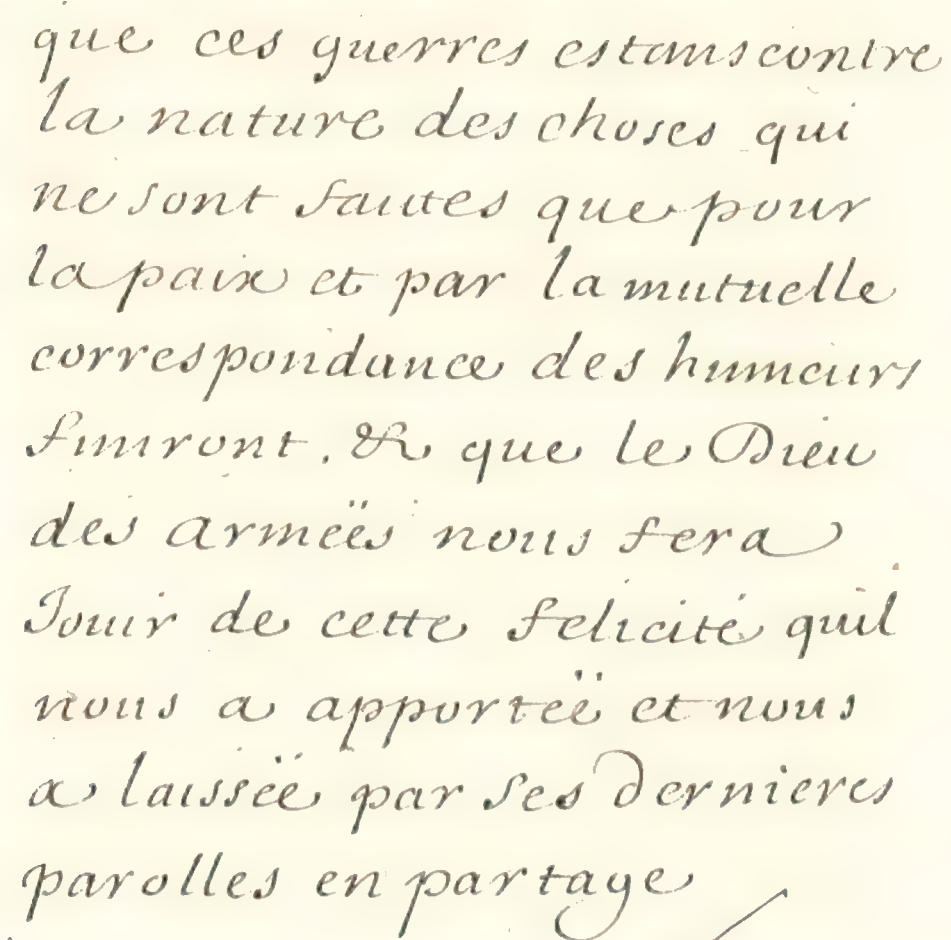 que ces guerres estans contre
la nature des choses qui
ne sont faites que pour
la paix et par la mutuelle
correspondance des humeurs
finiront. & que le Dieu
des armëës nous fera
Jouir de cette felicité quil
nous a apportëë et nous
a laissëë par ses dernieres
parolles en partage